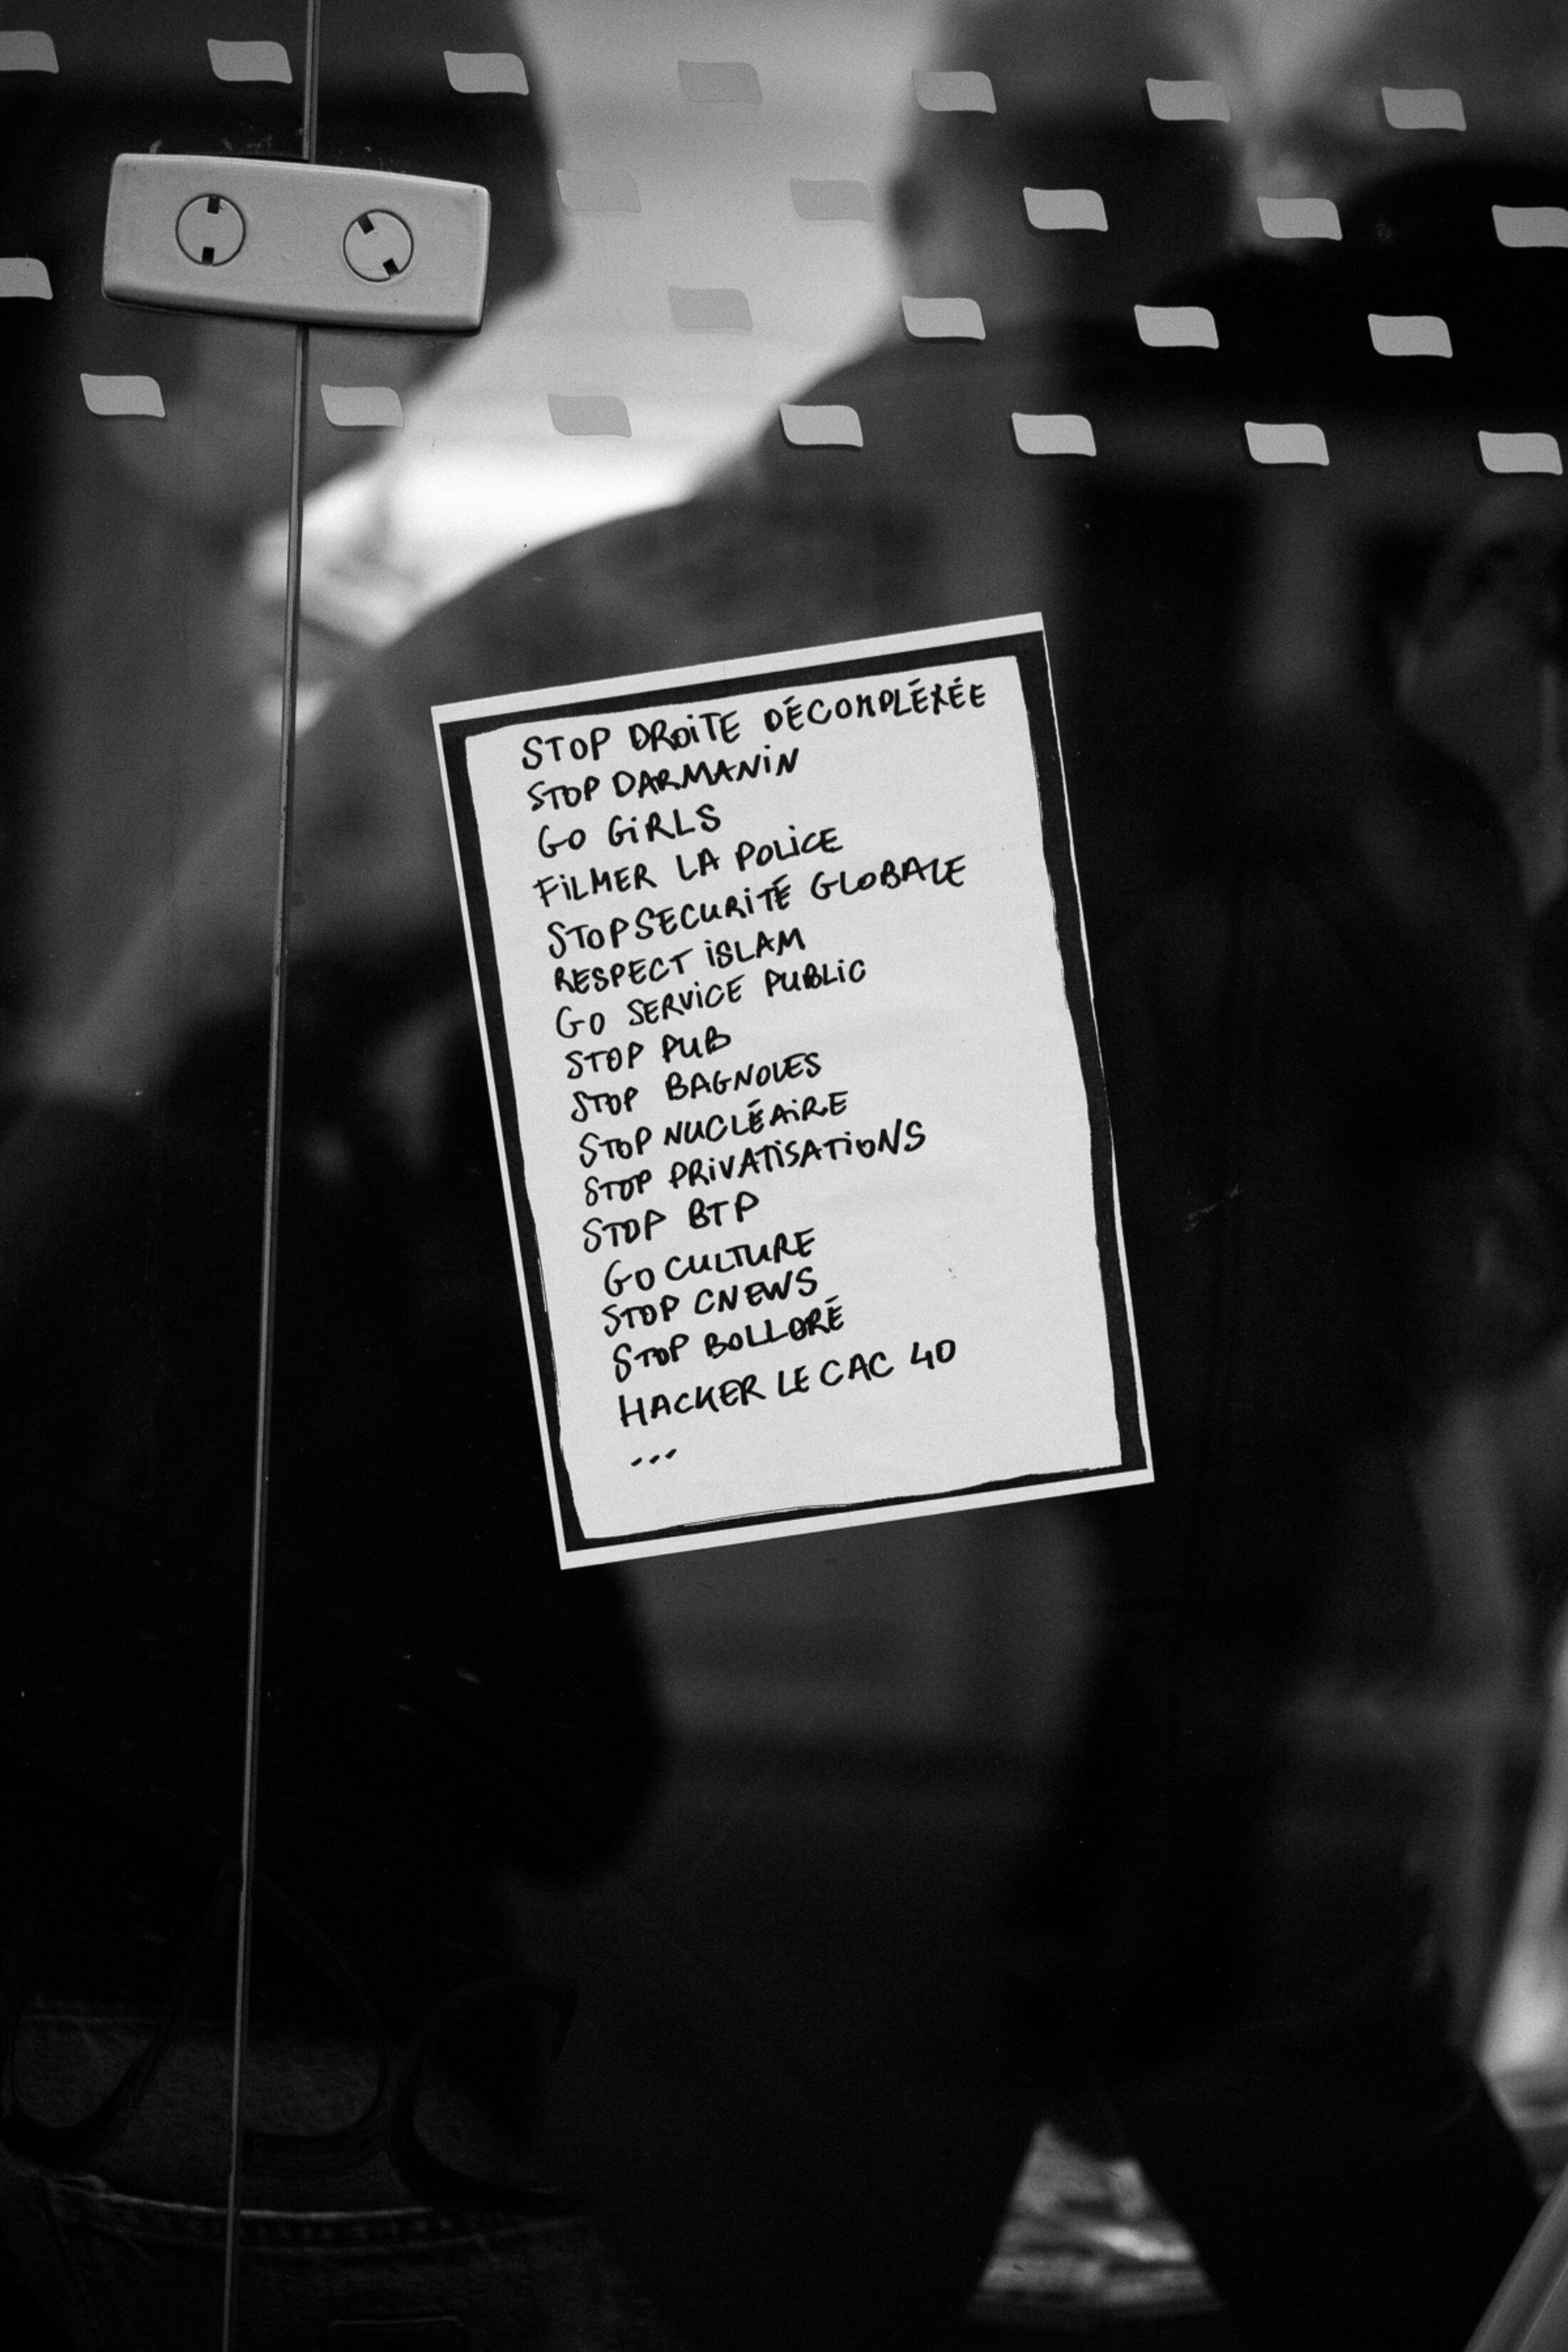 STOP DROITE DÉCOMPLÉXÉE
STOP DARMANIN
GO GIRLS
FILMER LA POLICE
STOP SECURITÉ GLOBALE
RESPECT ISLAM
GO SERVICE PUBLIC
STOP PUB
STOP BAGNOLES
STOP NUCLÉAIRE
STOP PRIVATISATIONS
STOP BTP
GO CULTURE
STOP CNEWS
STOP BOLLORÉ
HACKER LE CAC 40
...